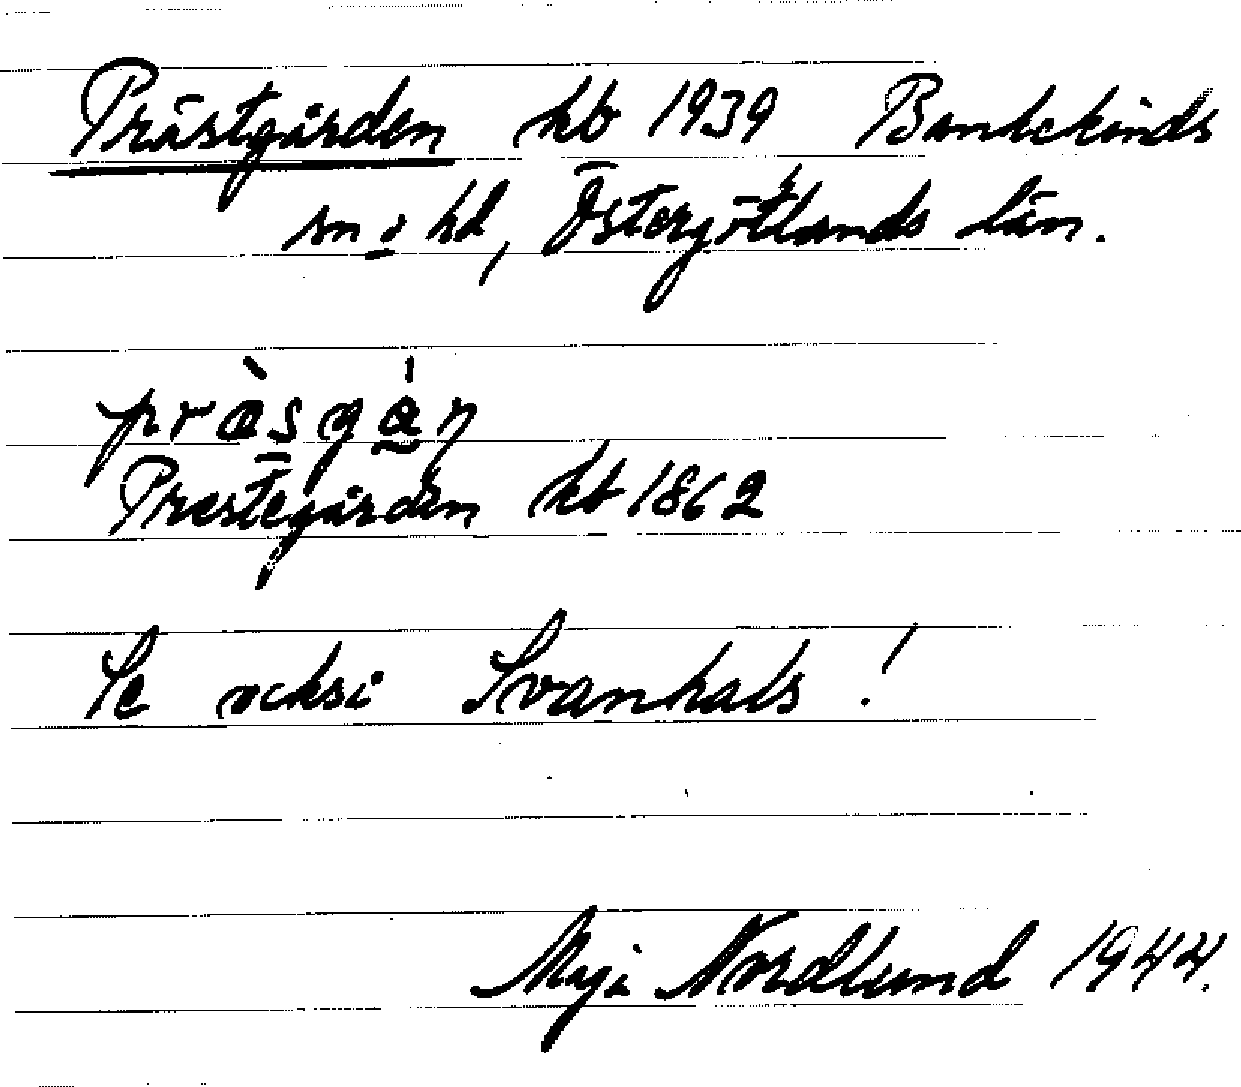 Prästgården kb 1939 Bankekinds
sn o hd, Östergötlands län.
præ̀sgá̰ṇ
Prestegården kb 1862
Se också Svanhals!
Maja Nordlund 1944.